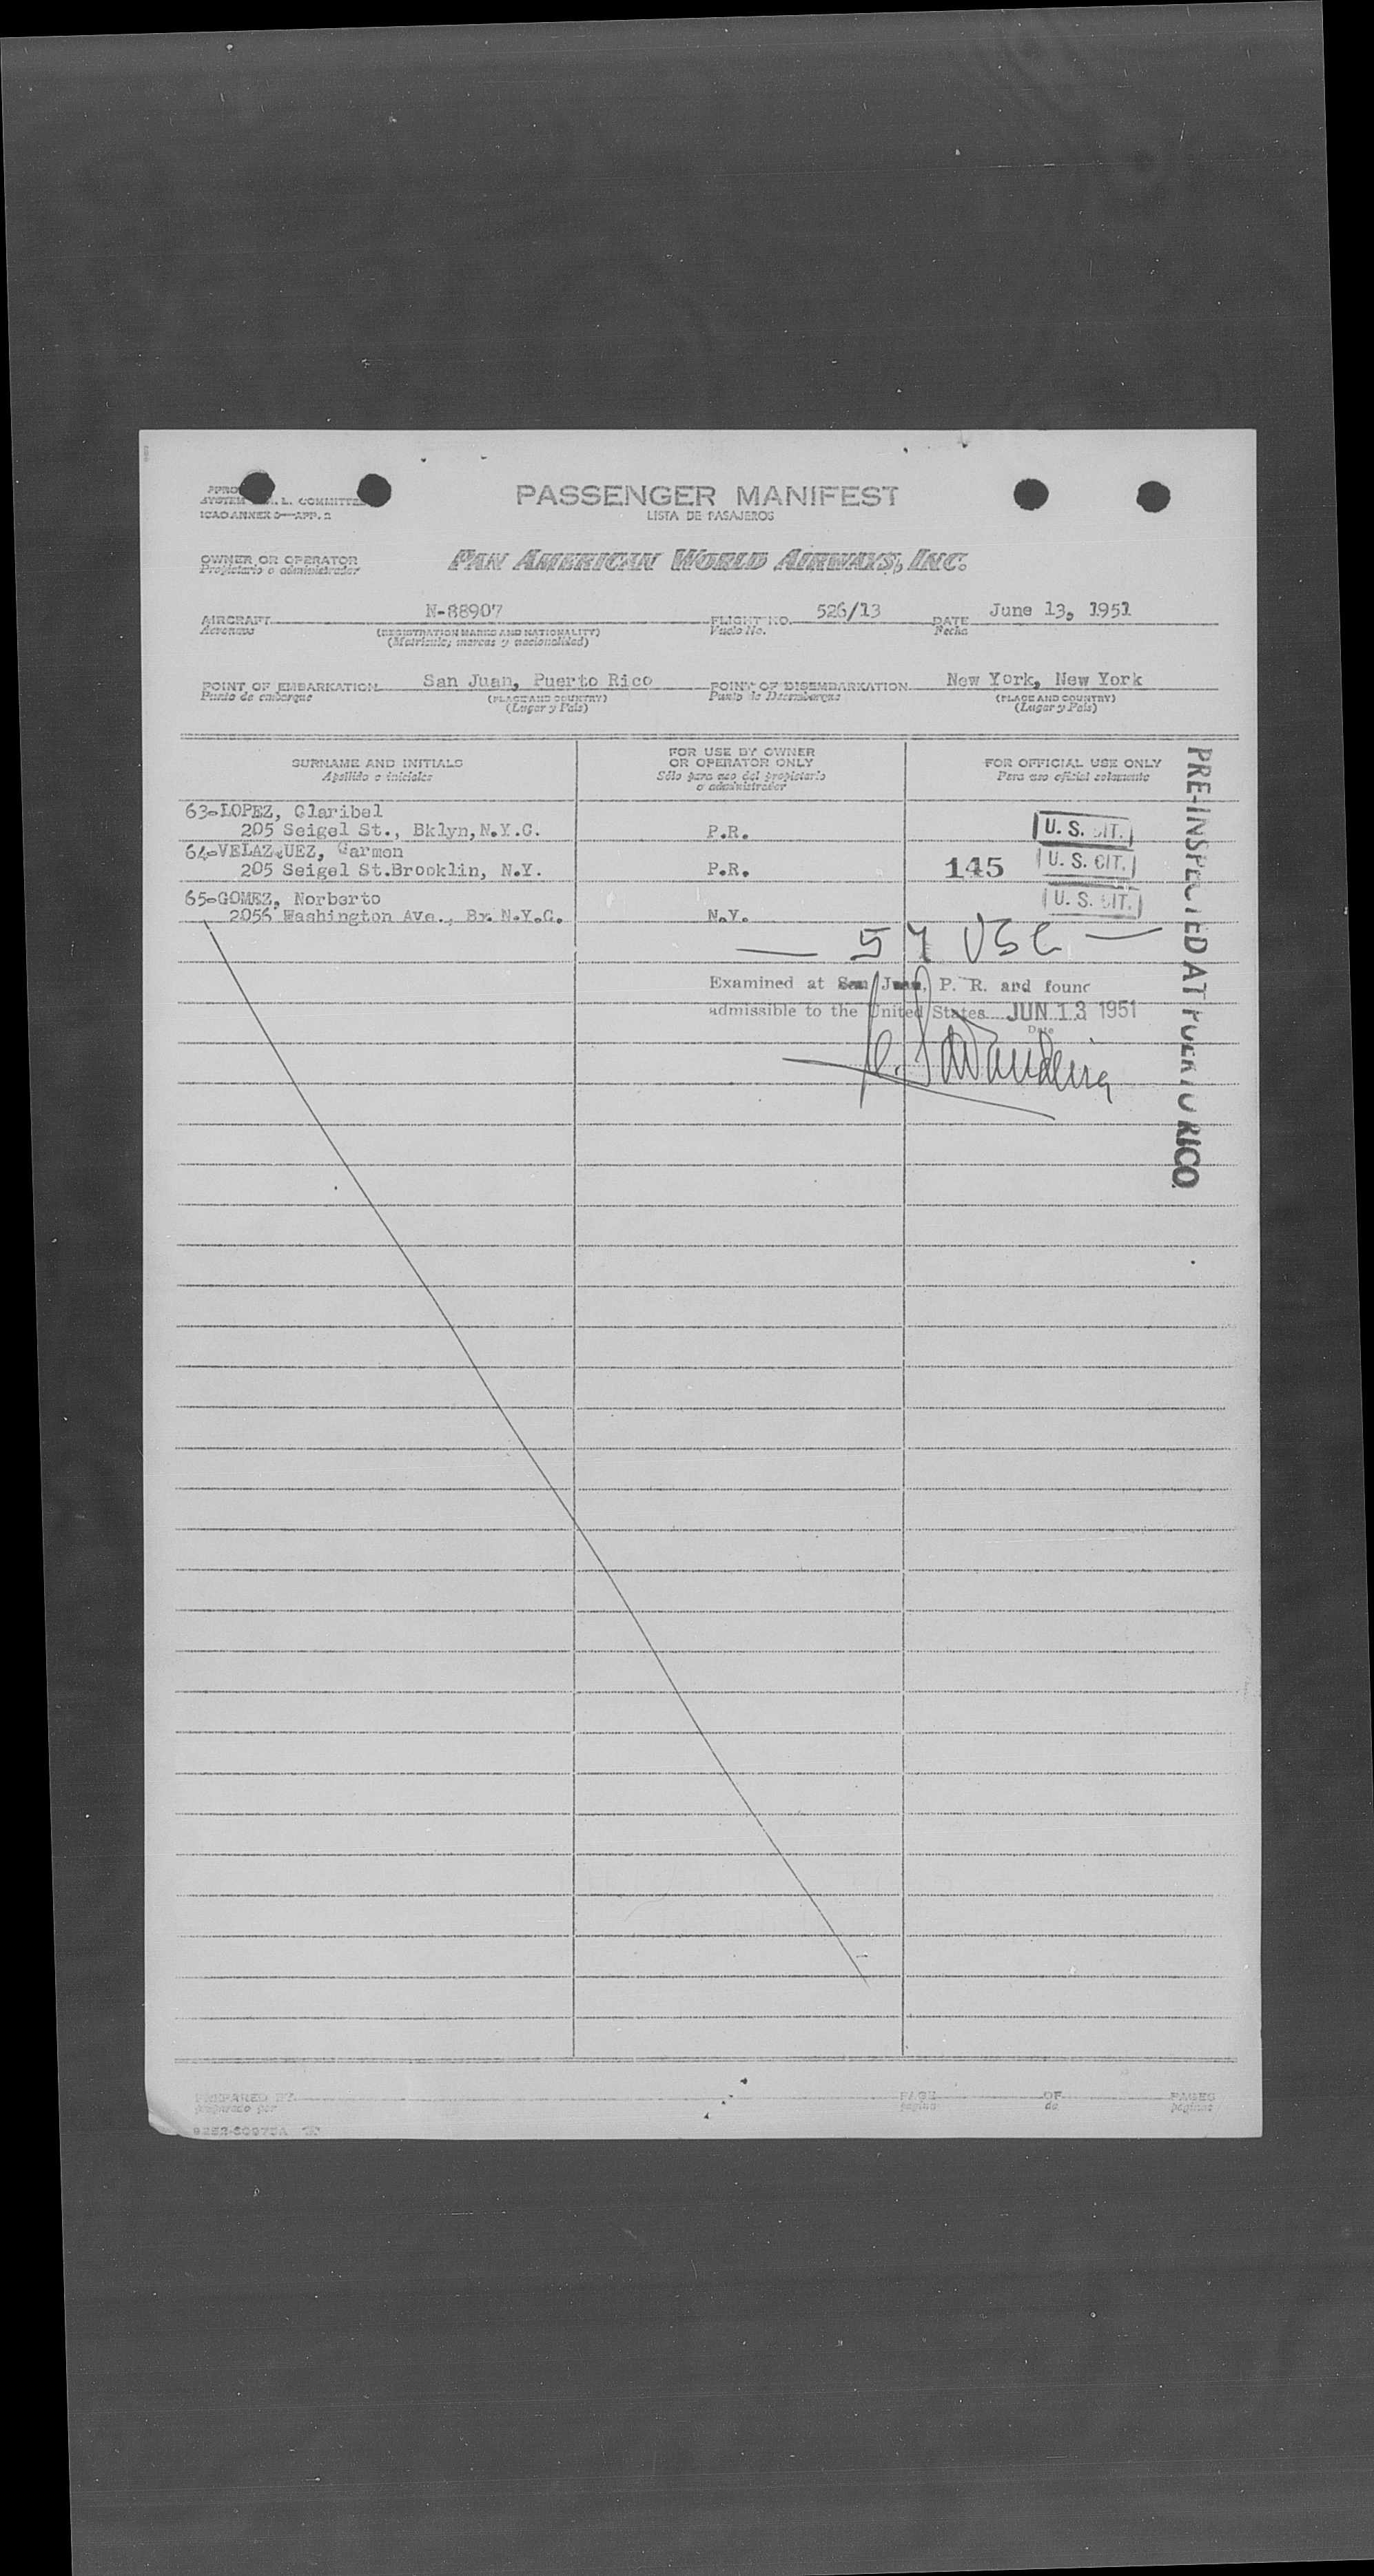 PASSENGER MANIFEST
LISTA DE PASAJEROS
SYSTEM COMMITTEE
ICAO ANNEX 9—APP. 2
OWNER OR OPERATOR
Propietario o administrador
PAN AMERICAN WORLD AIRWAYS, INC.
AIRCRAFT N-88907 FLIGHT NO. 526/13 DATE June 13, 1951
Aeronave (REGISTRATION MARKS AND NATIONALITY) Vuelo No. Fecha
(Matrícula; marcas y nacionalidad)
POINT OF EMBARKATION San Juan, Puerto Rico POINT OF DISEMBARKATION New York, New York
Punto de embarque (PLACE AND COUNTRY) Punto de Desembarque (PLACE AND COUNTRY)
(Lugar y País) (Lugar y País)
SURNAME AND INITIALS
Apellido e iniciales
FOR USE BY OWNER
OR OPERATOR ONLY
Sólo para uso del propietario
o administrador
FOR OFFICIAL USE ONLY
Para uso oficial solamente
63-LOPEZ, Claribel
205 Seigel St., Bklyn, N.Y.C. P.R. U. S. CIT.
64-VELAZQUEZ, Carmen
205 Seigel St.Brooklin, N.Y. P.R. 145 U. S. CIT.
65-GOMEZ, Norberto
2056 Washington Ave., Bx. N.Y.C. N.Y. U. S. CIT.
— 57 USC —
Examined at San Juan, P. R. and found
admissible to the United States JUN 13 1951
Date
PRE-INSPECTED AT PUERTO RICO
PREPARED BY PAGE OF PAGES
preparado por página de páginas